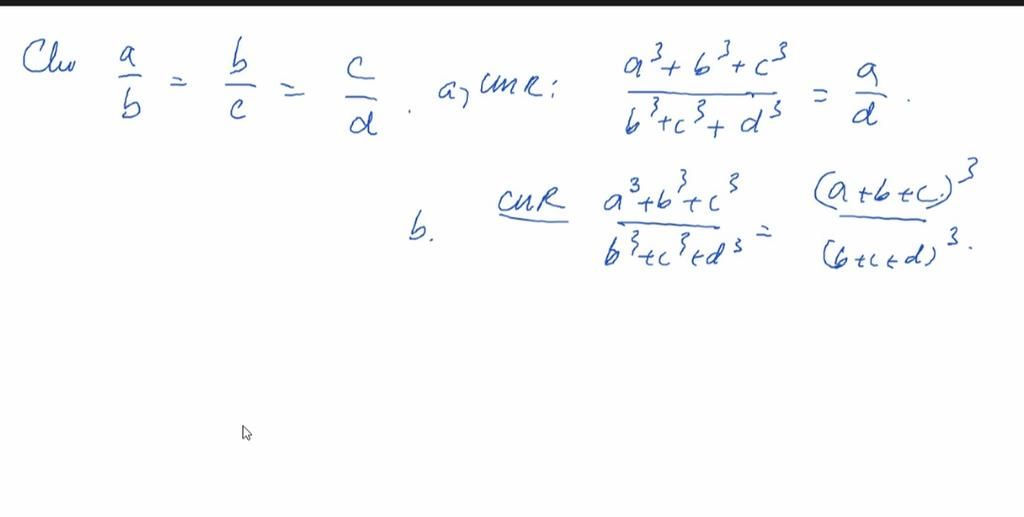 Cho a/b = b/c = c/d . a, CMR: (a³+b³+c³)/(b³+c³+d³) = a/d .
b. CMR (a³+b³+c³)/(b³+c³+d³) = (a+b+c)³/(b+c+d)³.